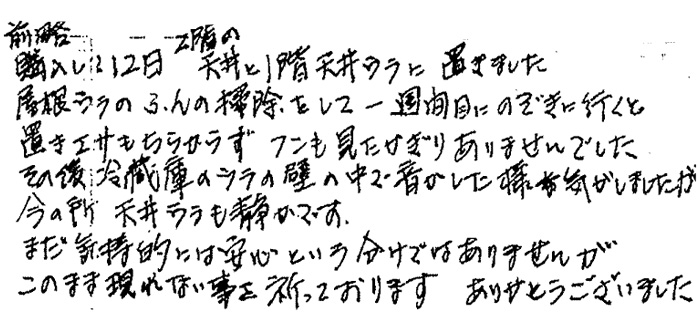 前略
購入して12日 2階の天井と1階天井ウラに 置きました
屋根ウラの ふんの掃除をして 一週間目にのぞきに行くと
置きエサもちらからず フンも見たかぎりありませんでした
その後 冷蔵庫のウラの壁の中で音がした様な気がしましたが
今の所 天井ウラも静かです.
まだ気持的には安心という分けではありませんが
このまま現れない事を祈っております ありがとうございました